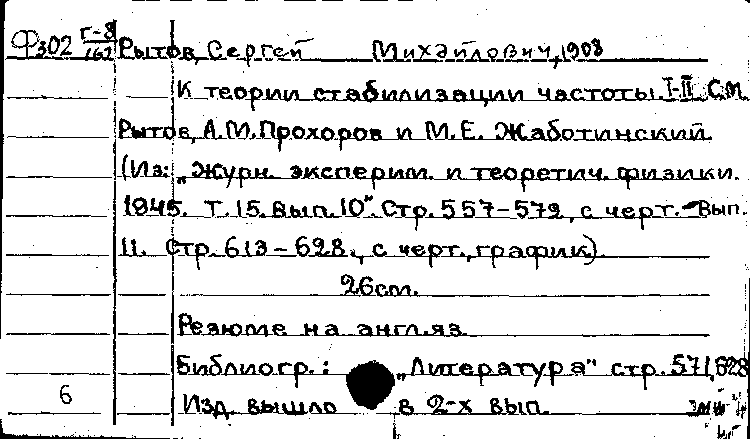 Ф302 Г-8/162 Рытов, Сергей Михайлович, 1908
К теории стабилизации частоты I-II. С.М.
Рытов, А.М. Прохоров и М.Е. Жаботинский.
(Из: „Журн. эксперим. и теоретич. физики.
1945. Т. 15. Вып. 10". Стр. 557-572, с черт. - Вып.
11. Стр. 613-628., с черт., график).
26см.
Резюме на англ.яз.
Библиогр.: „Литература" стр. 571, 628
6 Изд. вышло в 2-х вып.